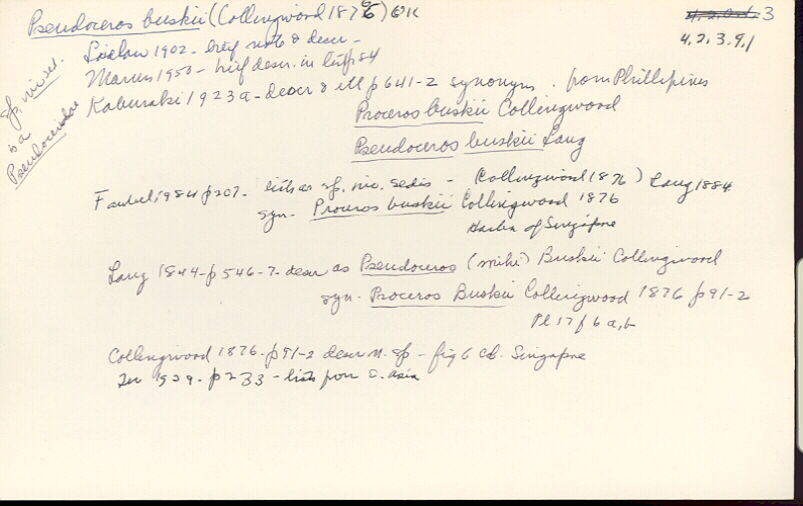 Pseudoceros buskii (Collingwood 1876) OK
3
4.2.3.9.1
sp. inc. sed.
Pseudoceridae
Laidlaw 1902 - brief note & descr -
Marcus 1950 - brief descr. in list p 84
Kaburaki 1923a - descr & ill p 641-2 synonyms. from Phillipines
Proceros buskii Collingwood
Pseudoceros buskii Lang
Faubel 1984 p 207. lists as sp. inc. sedis - (Collingwood 1876) Lang 1884
syn - Proceros buskii Collingwood 1876
Harbor of Singapore
Lang 1844 - p 546-7 - descr as Pseudoceros (mihi) Buskii Collingwood
syn - Proceros Buskii Collingwood 1876 p 91-2
Pl 17 f 6 a,b
Collingwood 1876 - p 91-2 descr n. sp - fig 6 ab. Singapore
1929 - p 233 - lists from S. asia